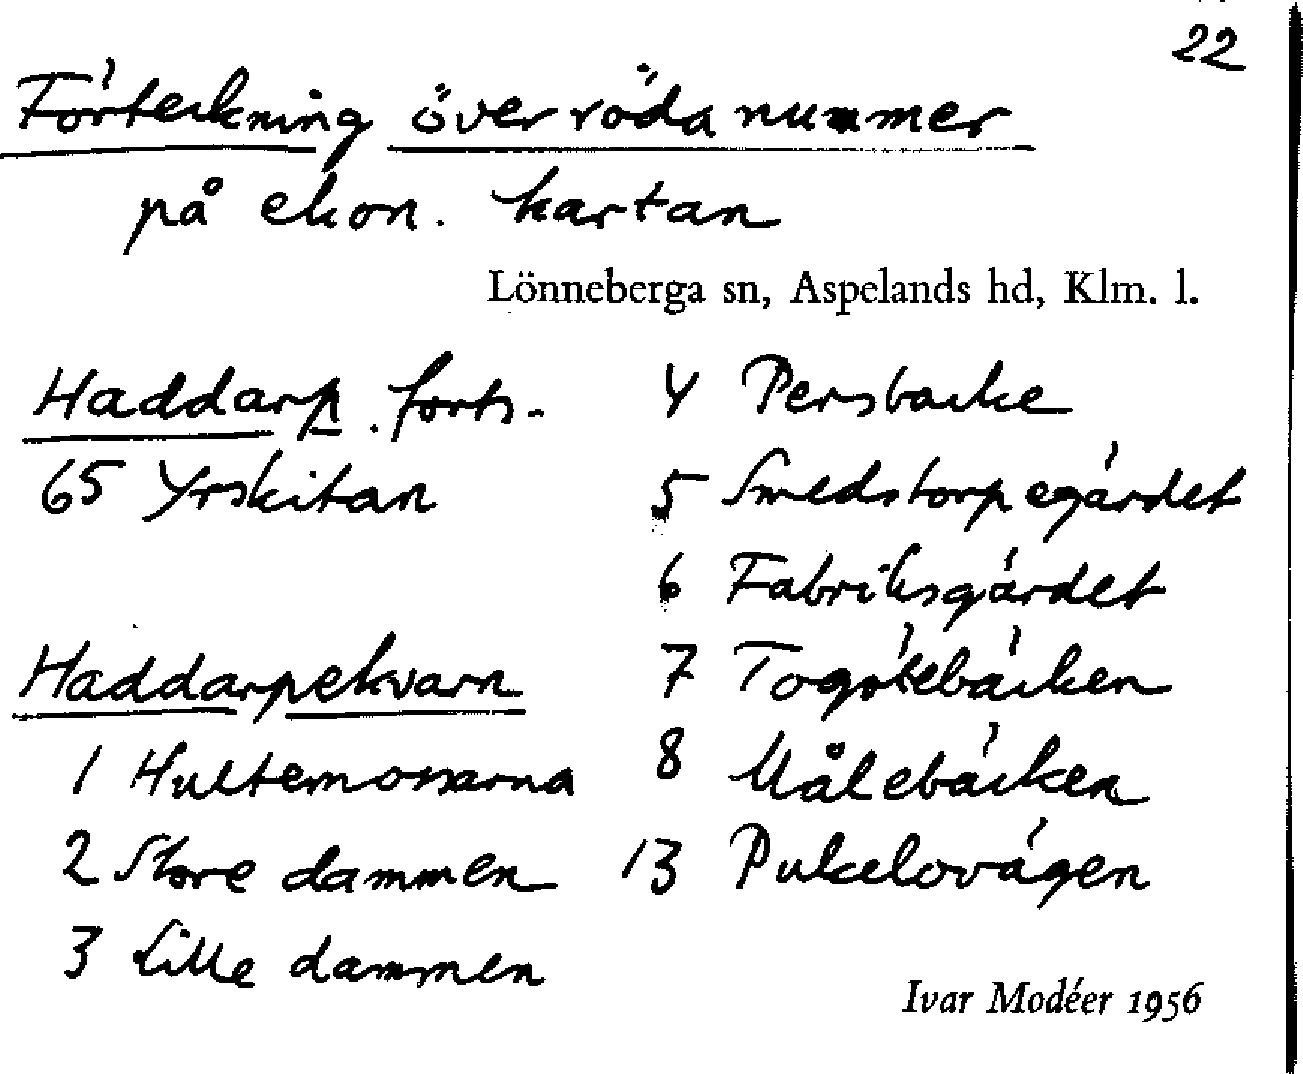 22
Förteckning över röda nummer
på ekon. kartan
Lönneberga sn, Aspelands hd, Klm. l.
Haddarp. forts.
65 Yrskitan
Haddarpekvarn
1 Hultemossarna
2 Store dammen
3 Lille dammen
4 Persbacke
5 Smedstorpegärdet
6 Fabriksgärdet
7 Togölebäcken
8 Målebäcken
13 Pukelovägen
Ivar Modéer 1956